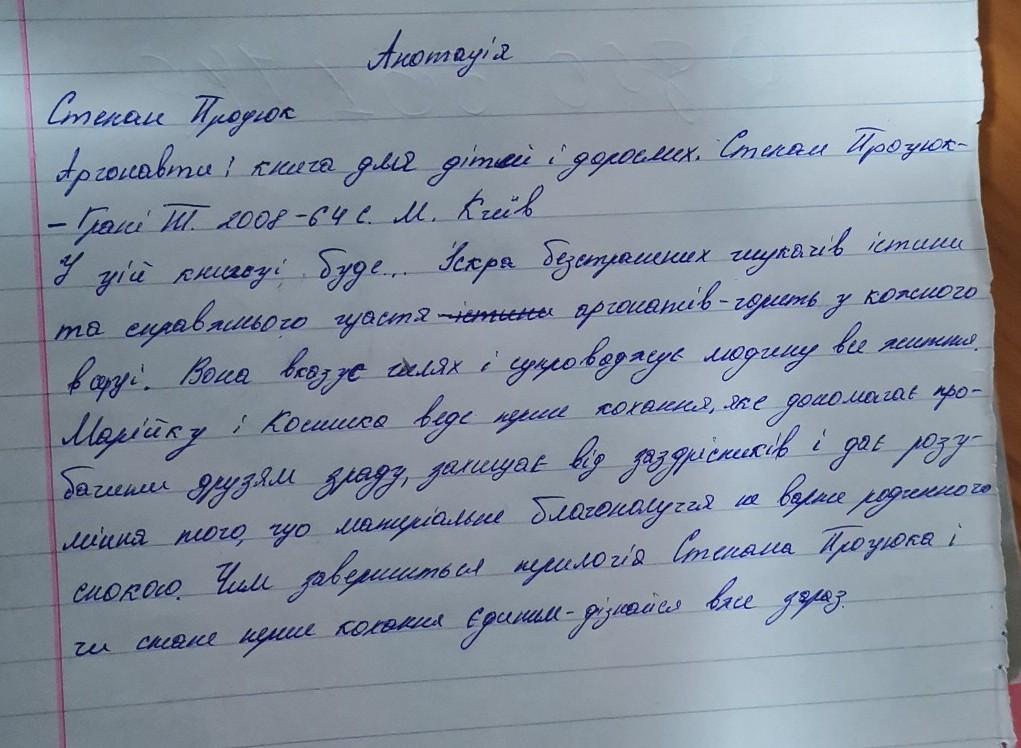 Анотація
Степан Процюк
Аргонавти: книга для дітей і дорослих. Степан Процюк-
- Грані Т. 2008 - 64 с. М. Київ
У цій книжці буде... Іскра безстрашних шукачів істини
та справжнього щастя істини аргонатів-горить у кожного
в серці. Вона вказує шлях і супроводжує людину все життя.
Марійку і Косишка веде перше кохання, яке допомагає про-
бачити друзям зраду, захищає від заздрісників і дає розу-
міння того, що матеріальне благополуччя не варте родинного
спокою. Чим завершиться трилогія Степана Процюка і
чи стане перше кохання єдиним-дізнайся вже зараз.